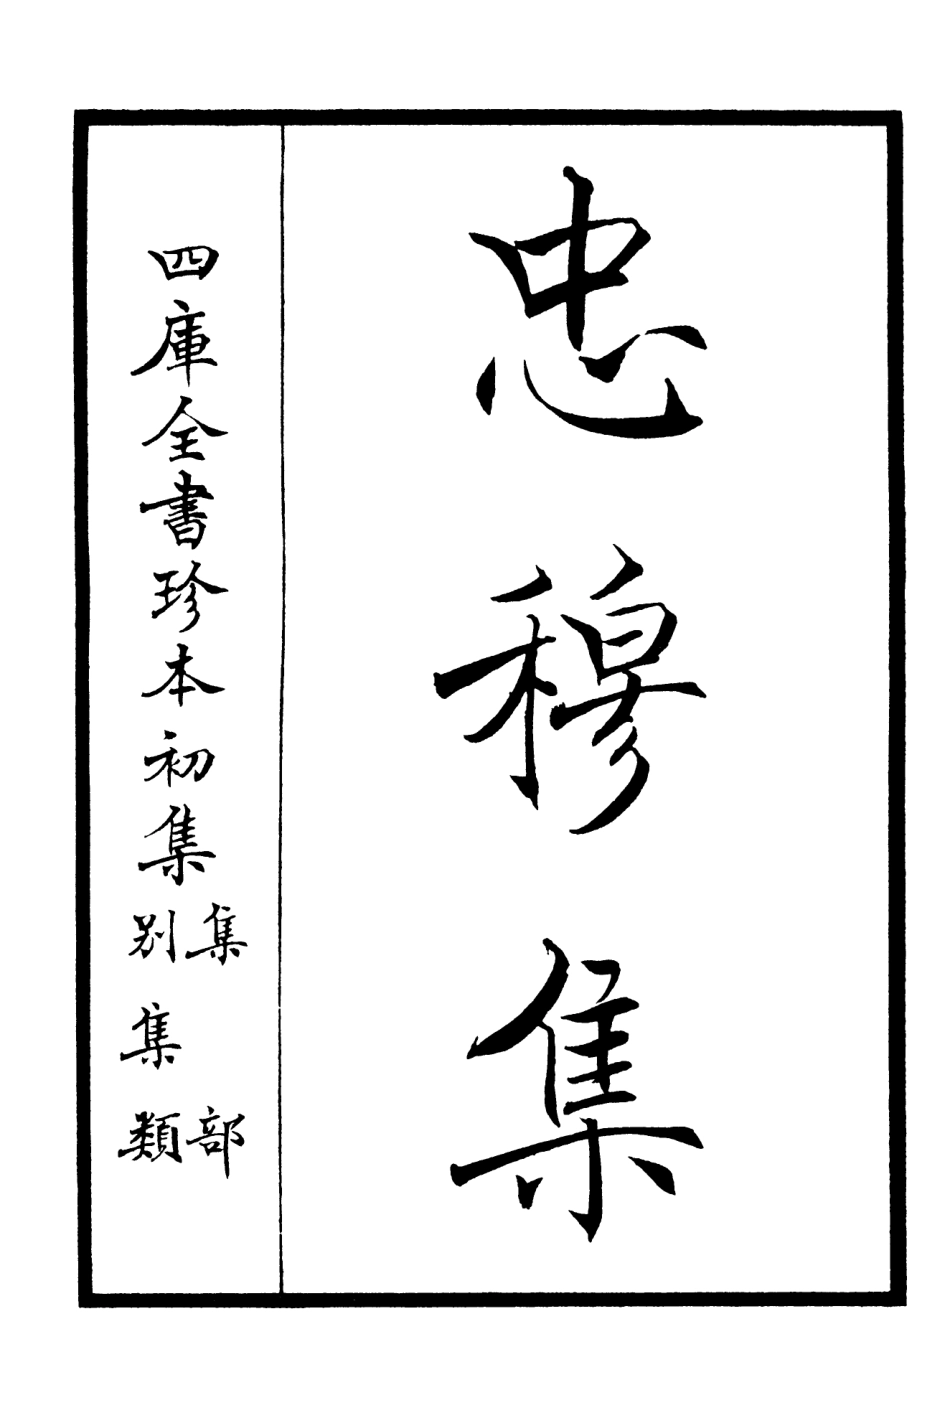 忠穆集
四庫全書珍本初集
集部
別集類